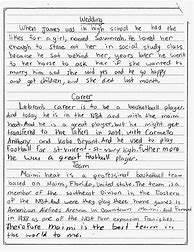 Wedding
When James was in high school he had the
likes for a girl, named Savannah. He loved her
enough to stare at her in social study class
because he sat behind her, years later he went
to her house to ask her if she wanted to
marry him and she said yes and he go happy
and got children, and she died last month.
Career
Lebron's career is to be a basketball player.
And today he is in the NBA and with the miami
heat. And he is a great player, but he might get
transferred to the lakers in 2014, with Carmello
Anthony and Kobe Bryant. And he used to play
Football for St. Vincent - St. mary high. Futher more
he was a great football player.
Team
Maimi heat is a professional basketball team
based on Maimi, Florida, United state. The team is a
member of the southeast Division in the Eastern
of the NBA. And were they play there home games is
American Airlines Arena in Downtown Miami. And formed
in 1988 as one of the NBA four expansion franchises.
Therefore maimi is the best team
in the world to me.